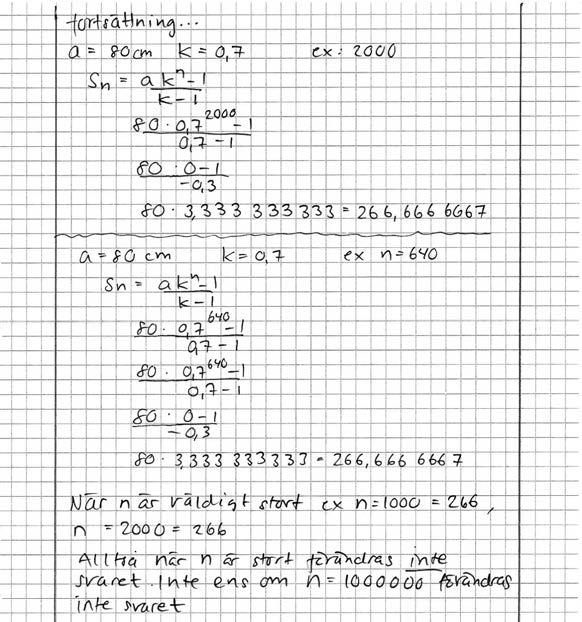 fortsättning...
a = 80cm k = 0,7 ex: 2000
Sn = a kⁿ - 1
k - 1
80 · 0,7²⁰⁰⁰ - 1
0,7 - 1
80 · 0 - 1
-0,3
80 · 3,333 333 333 = 266,666 6667
a = 80 cm k = 0,7 ex n = 640
Sn = a kⁿ - 1
k - 1
80 · 0,7⁶⁴⁰ - 1
0,7 - 1
80 · 0,7⁶⁴⁰ - 1
0,7 - 1
80 · 0 - 1
-0,3
80 · 3,333 333 333 = 266,666 6667
När n är väldigt stort ex n = 1000 = 266,
n = 2000 = 266
Alltså när n är stort förändras inte
svaret. Inte ens om n = 1000000 förändras
inte svaret